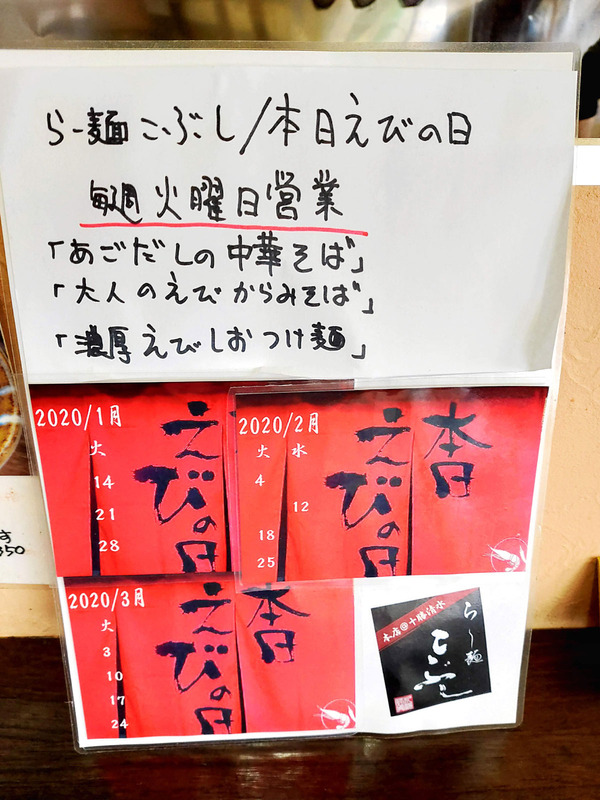 らー麺こぶし/本日えびの日
毎週火曜日営業
「あごだしの中華そば」
「大人のえびからみそば」
「濃厚えびしおつけ麺」
2020/1月
火
14
21
28
えびの日
2020/2月
火 水
4
12
18
25
本日
えびの日
2020/3月
火
3
10
17
24
本日
えびの日
本店@十勝清水
らー麺
こぶし
す
350